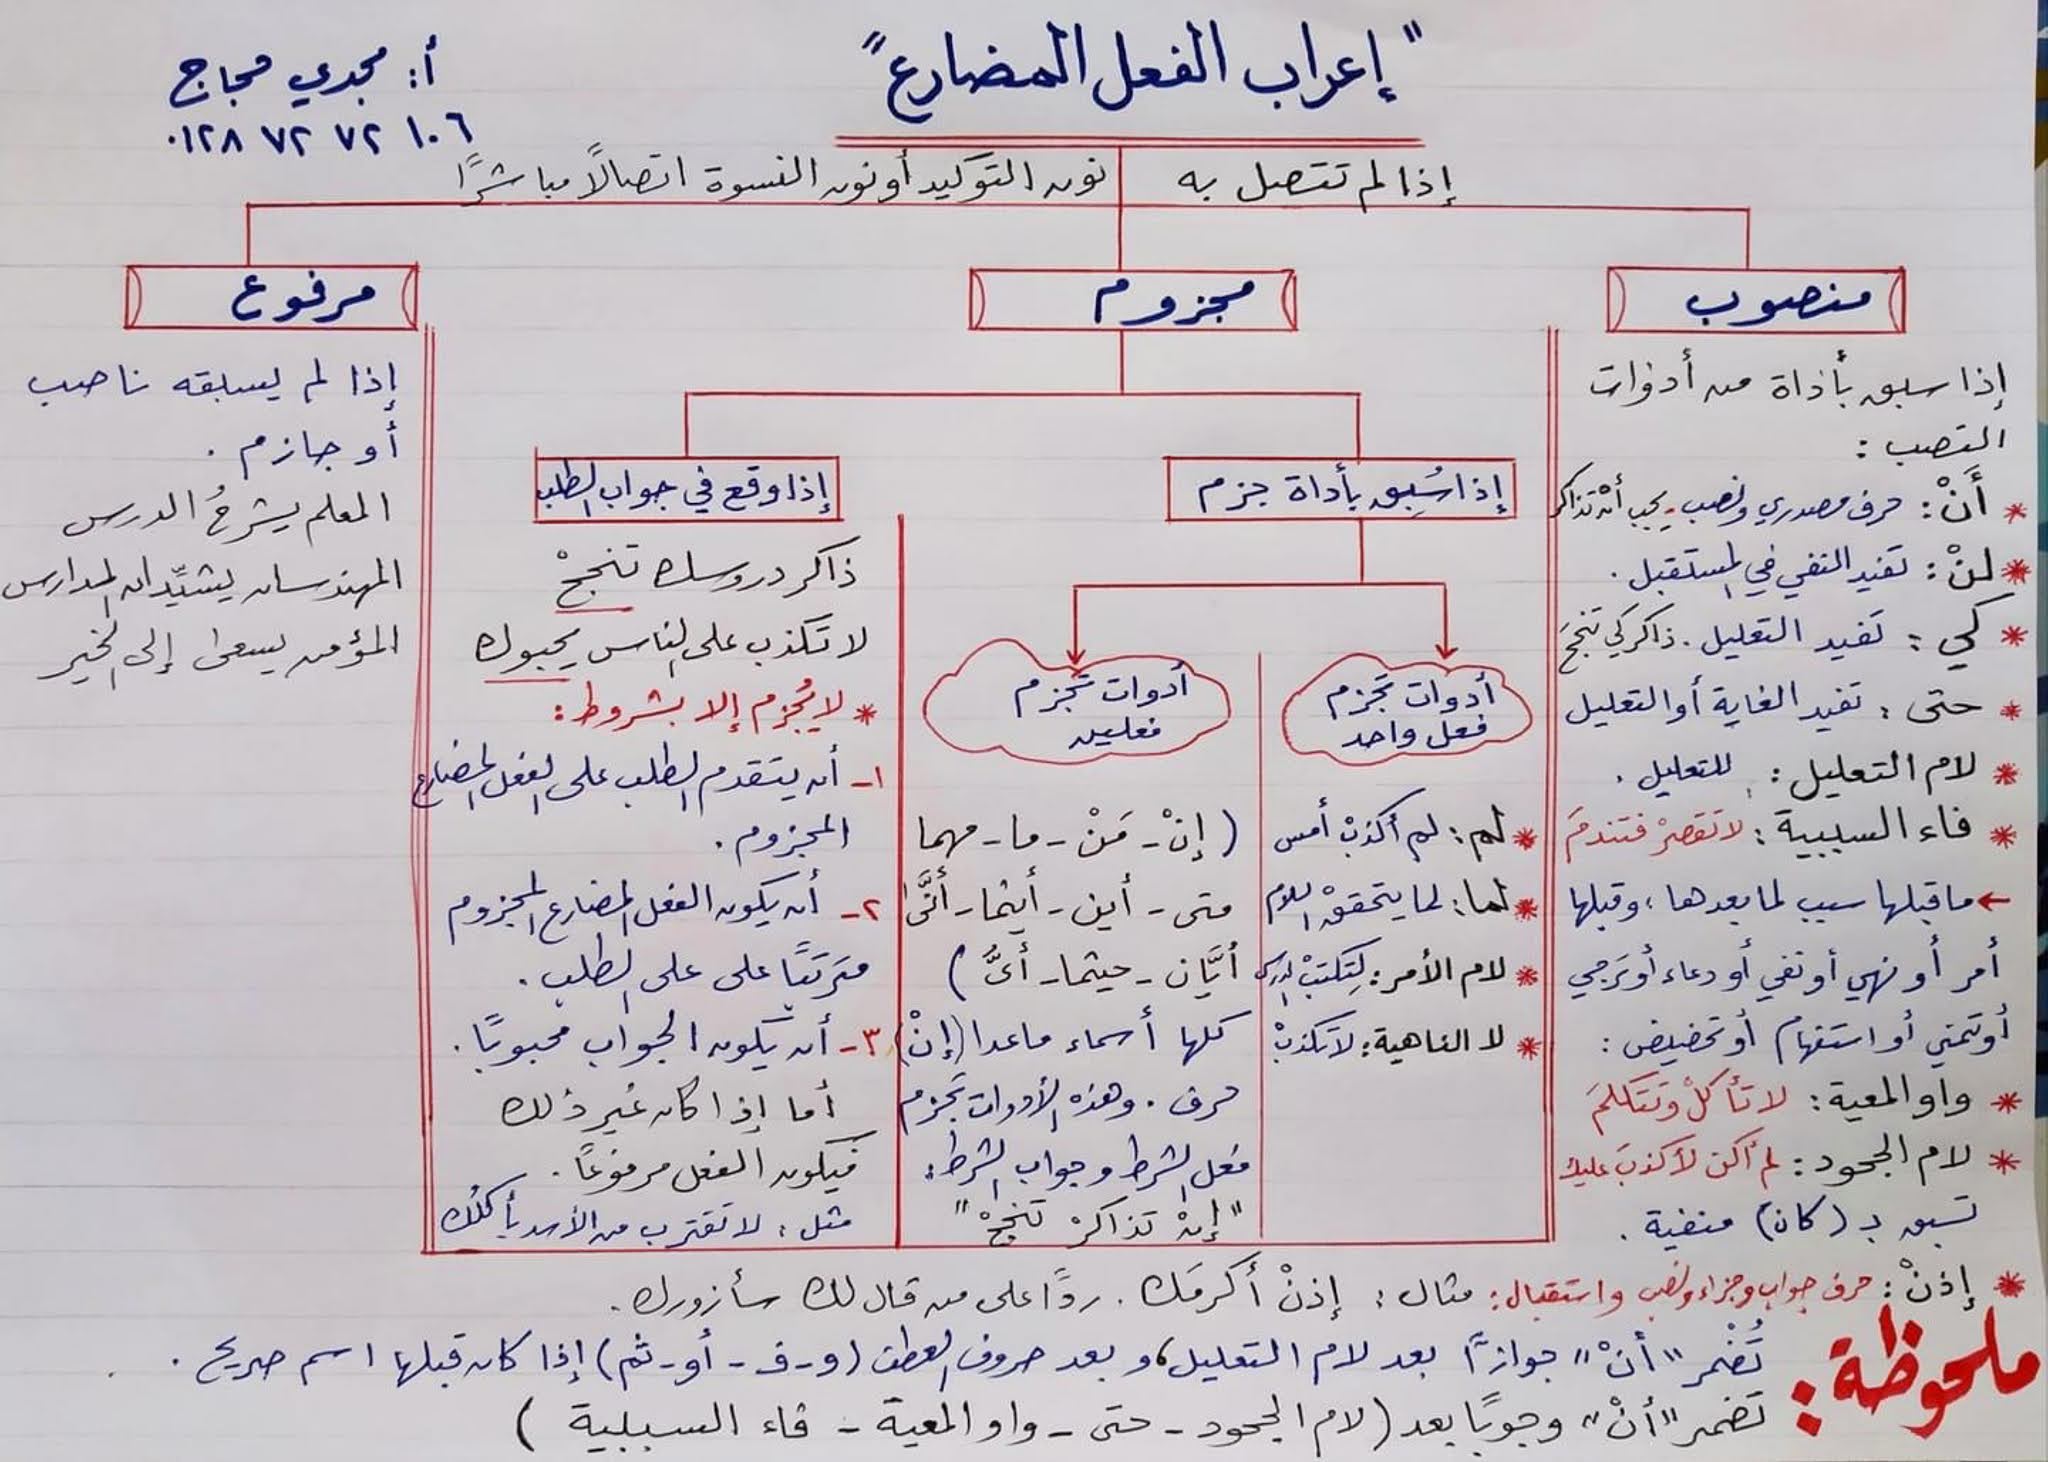 "إعراب الفعل المضارع"
أ: مجدي محاج
٠١٢٨ ٧٢ ٧٢ ١٠٦
إذا لم تتصل به نون التوكيد أو نون النسوة اتصالًا مباشرًا
منصوب
إذا سبق بأداة من أدوات
النصب :
* أَنْ: حرف مصدري ونصب - يجب أن تذاكر
* لنْ: تفيد النفي في المستقبل .
* كي: تفيد التعليل . ذاكر كي تنجحَ
* حتى: تفيد الغاية أو التعليل
* لام التعليل: للتعليل .
* فاء السببية: لا تقصرْ فتندمَ
← ما قبلها سبب لما بعدها، وقبلها
أمر أو نهي أو نفي أو دعاء أو ترجي
أو تمني أو استفهام أو تحضيض :
* واو المعية: لا تأكلْ وتتكلمَ
* لام الجحود: لم أكن لأكذبَ عليك
تسبق بـ (كان) منفية .
* إذنْ: حرف جواب وجزاء ونصب واستقبال: مثال: إذنْ أكرمَك . ردًا على من قال لك سأزورك.
مجزوم
إذا سُبق بأداة جزم
أدوات تجزم
فعل واحد
* لم: لم أكذبْ أمس
* لما: لما يتحققْ السلام
* لام الأمر: لِتكتبْ الدرس
* لا الناهية: لا تكذبْ
أدوات تجزم
فعلين
( إنْ - مَنْ - ما - مهما
متى - أين - أينما - أنَّى
أيَّان - حيثما - أيُّ )
كلها أسماء ماعدا (إنْ)
حرف . وهذه الأدوات تجزم
فعل الشرط وجواب الشرط:
"إن تذاكرْ تنجحْ"
إذا وقع في جواب الطلب
ذاكر دروسك تنجحْ
لا تكذب على الناس يحبوك
* لا يُجزم إلا بشروط:
١- أن يتقدم الطلب على الفعل المضارع
المجزوم .
٢- أن يكون الفعل المضارع المجزوم
مترتبًا على على الطلب .
٣- أن يكون الجواب محبوبًا .
أما إذا كان غير ذلك
فيكون الفعل مرفوعًا .
مثل: لا تقترب من الأسد يأكلُك
مرفوع
إذا لم يسبقه ناصب
أو جازم .
المعلم يشرحُ الدرس
المهندسان يشيِّدان المدارس
المؤمن يسعى إلى الخير
ملحوظة :
تُضْمر "أنْ" جوازًا بعد لام التعليل، وبعد حروف العطف (و - ف - أو - ثم) إذا كان قبلها اسم صريح .
تضمر "أنْ" وجوبًا بعد (لام الجحود - حتى - واو المعية - فاء السببية )